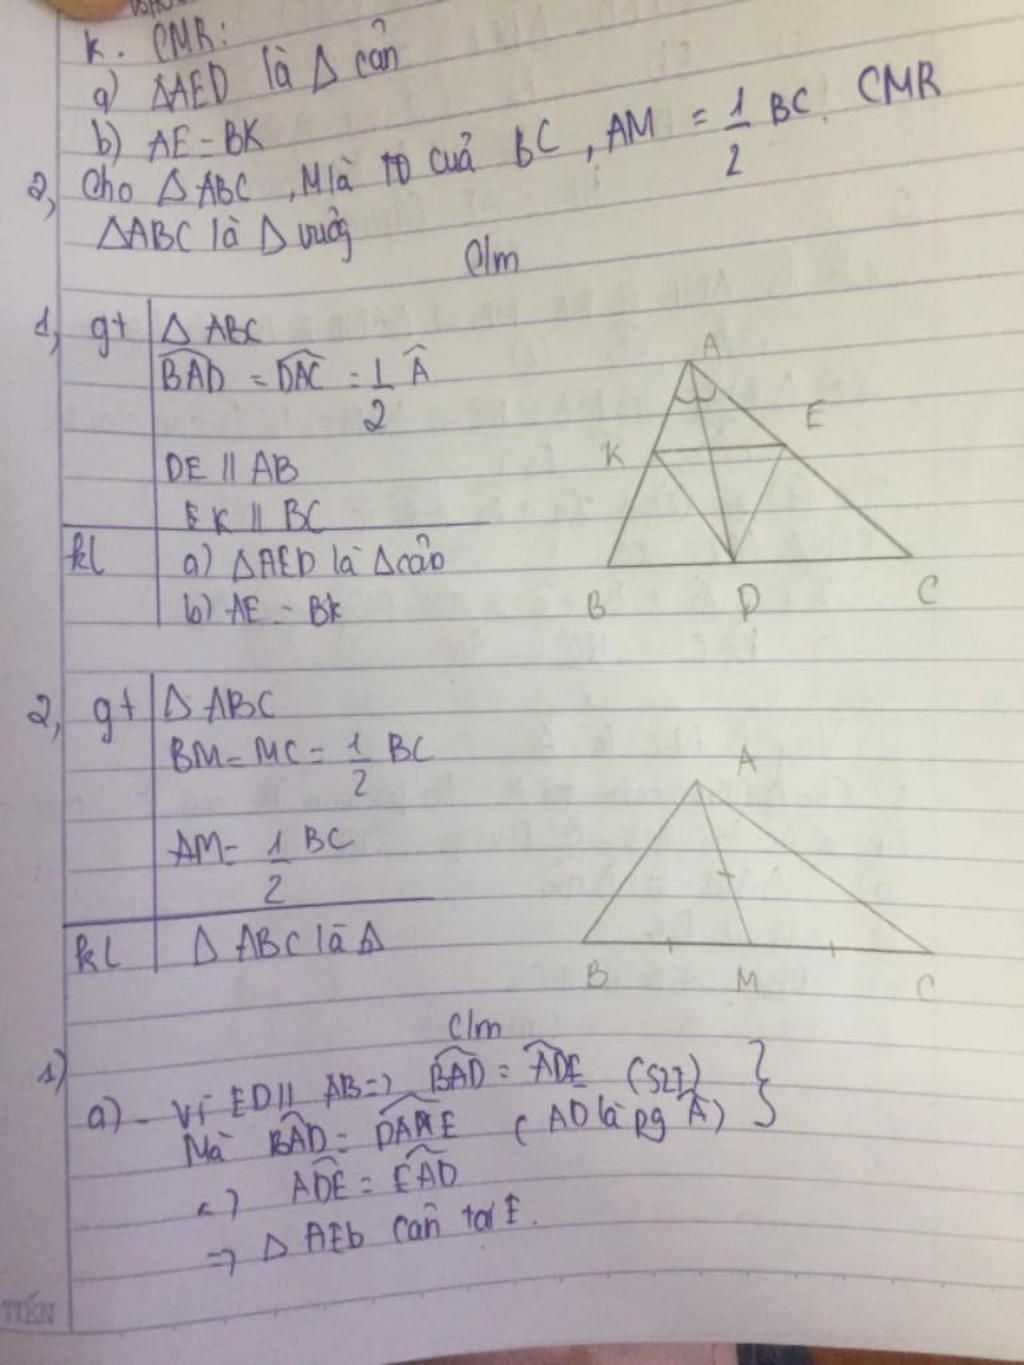 K. CMR:
a) ΔAED là Δ cân
b) AE = BK
2, Cho ΔABC, M là TĐ của BC, AM = 1/2 BC. CMR
ΔABC là Δ vuông
C/m
1, gt Δ ABC
BAD = DAC = 1/2 A
DE // AB
EK // BC
kl a) ΔAED là Δcân
b) AE = BK
A
E
K
B D C
2, gt Δ ABC
BM = MC = 1/2 BC
AM = 1/2 BC
kl Δ ABC là Δ
A
B M C
C/m
1)
a) - Vì ED // AB => BAD = ADE (SLT)
Mà BAD = DAE (AD là pg A)
=> ADE = EAD
=> Δ AED cân tại E.
TIẾN